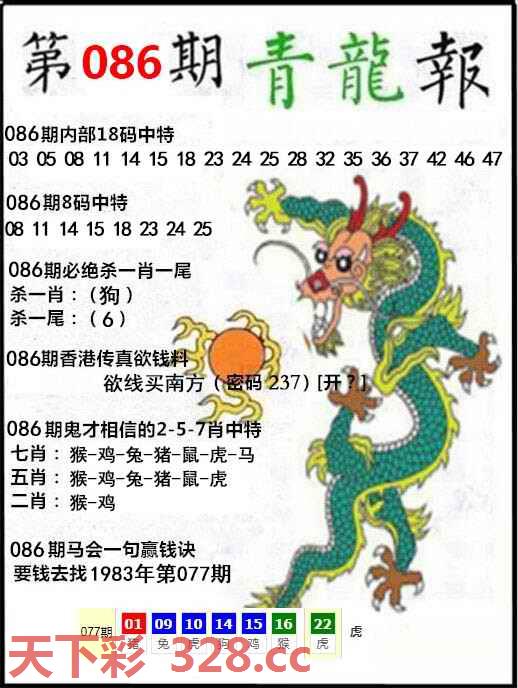 第086期 青龍報
086期内部18码中特
03 05 08 11 14 15 18 23 24 25 28 32 35 36 37 42 46 47
086期8码中特
08 11 14 15 18 23 24 25
086期必绝杀一肖一尾
杀一肖：（狗）
杀一尾：（6）
086期香港传真欲钱料
欲线买南方（密码 237）[开？]
086期鬼才相信的2-5-7肖中特
七肖：猴-鸡-兔-猪-鼠-虎-马
五肖：猴-鸡-兔-猪-鼠-虎
二肖：猴-鸡
086期马会一句赢钱诀
要钱去找1983年第077期
077期 01 09 10 14 15 16 22 虎
猪 兔 虎 狗 鸡 猴 虎
天下彩 328.cc